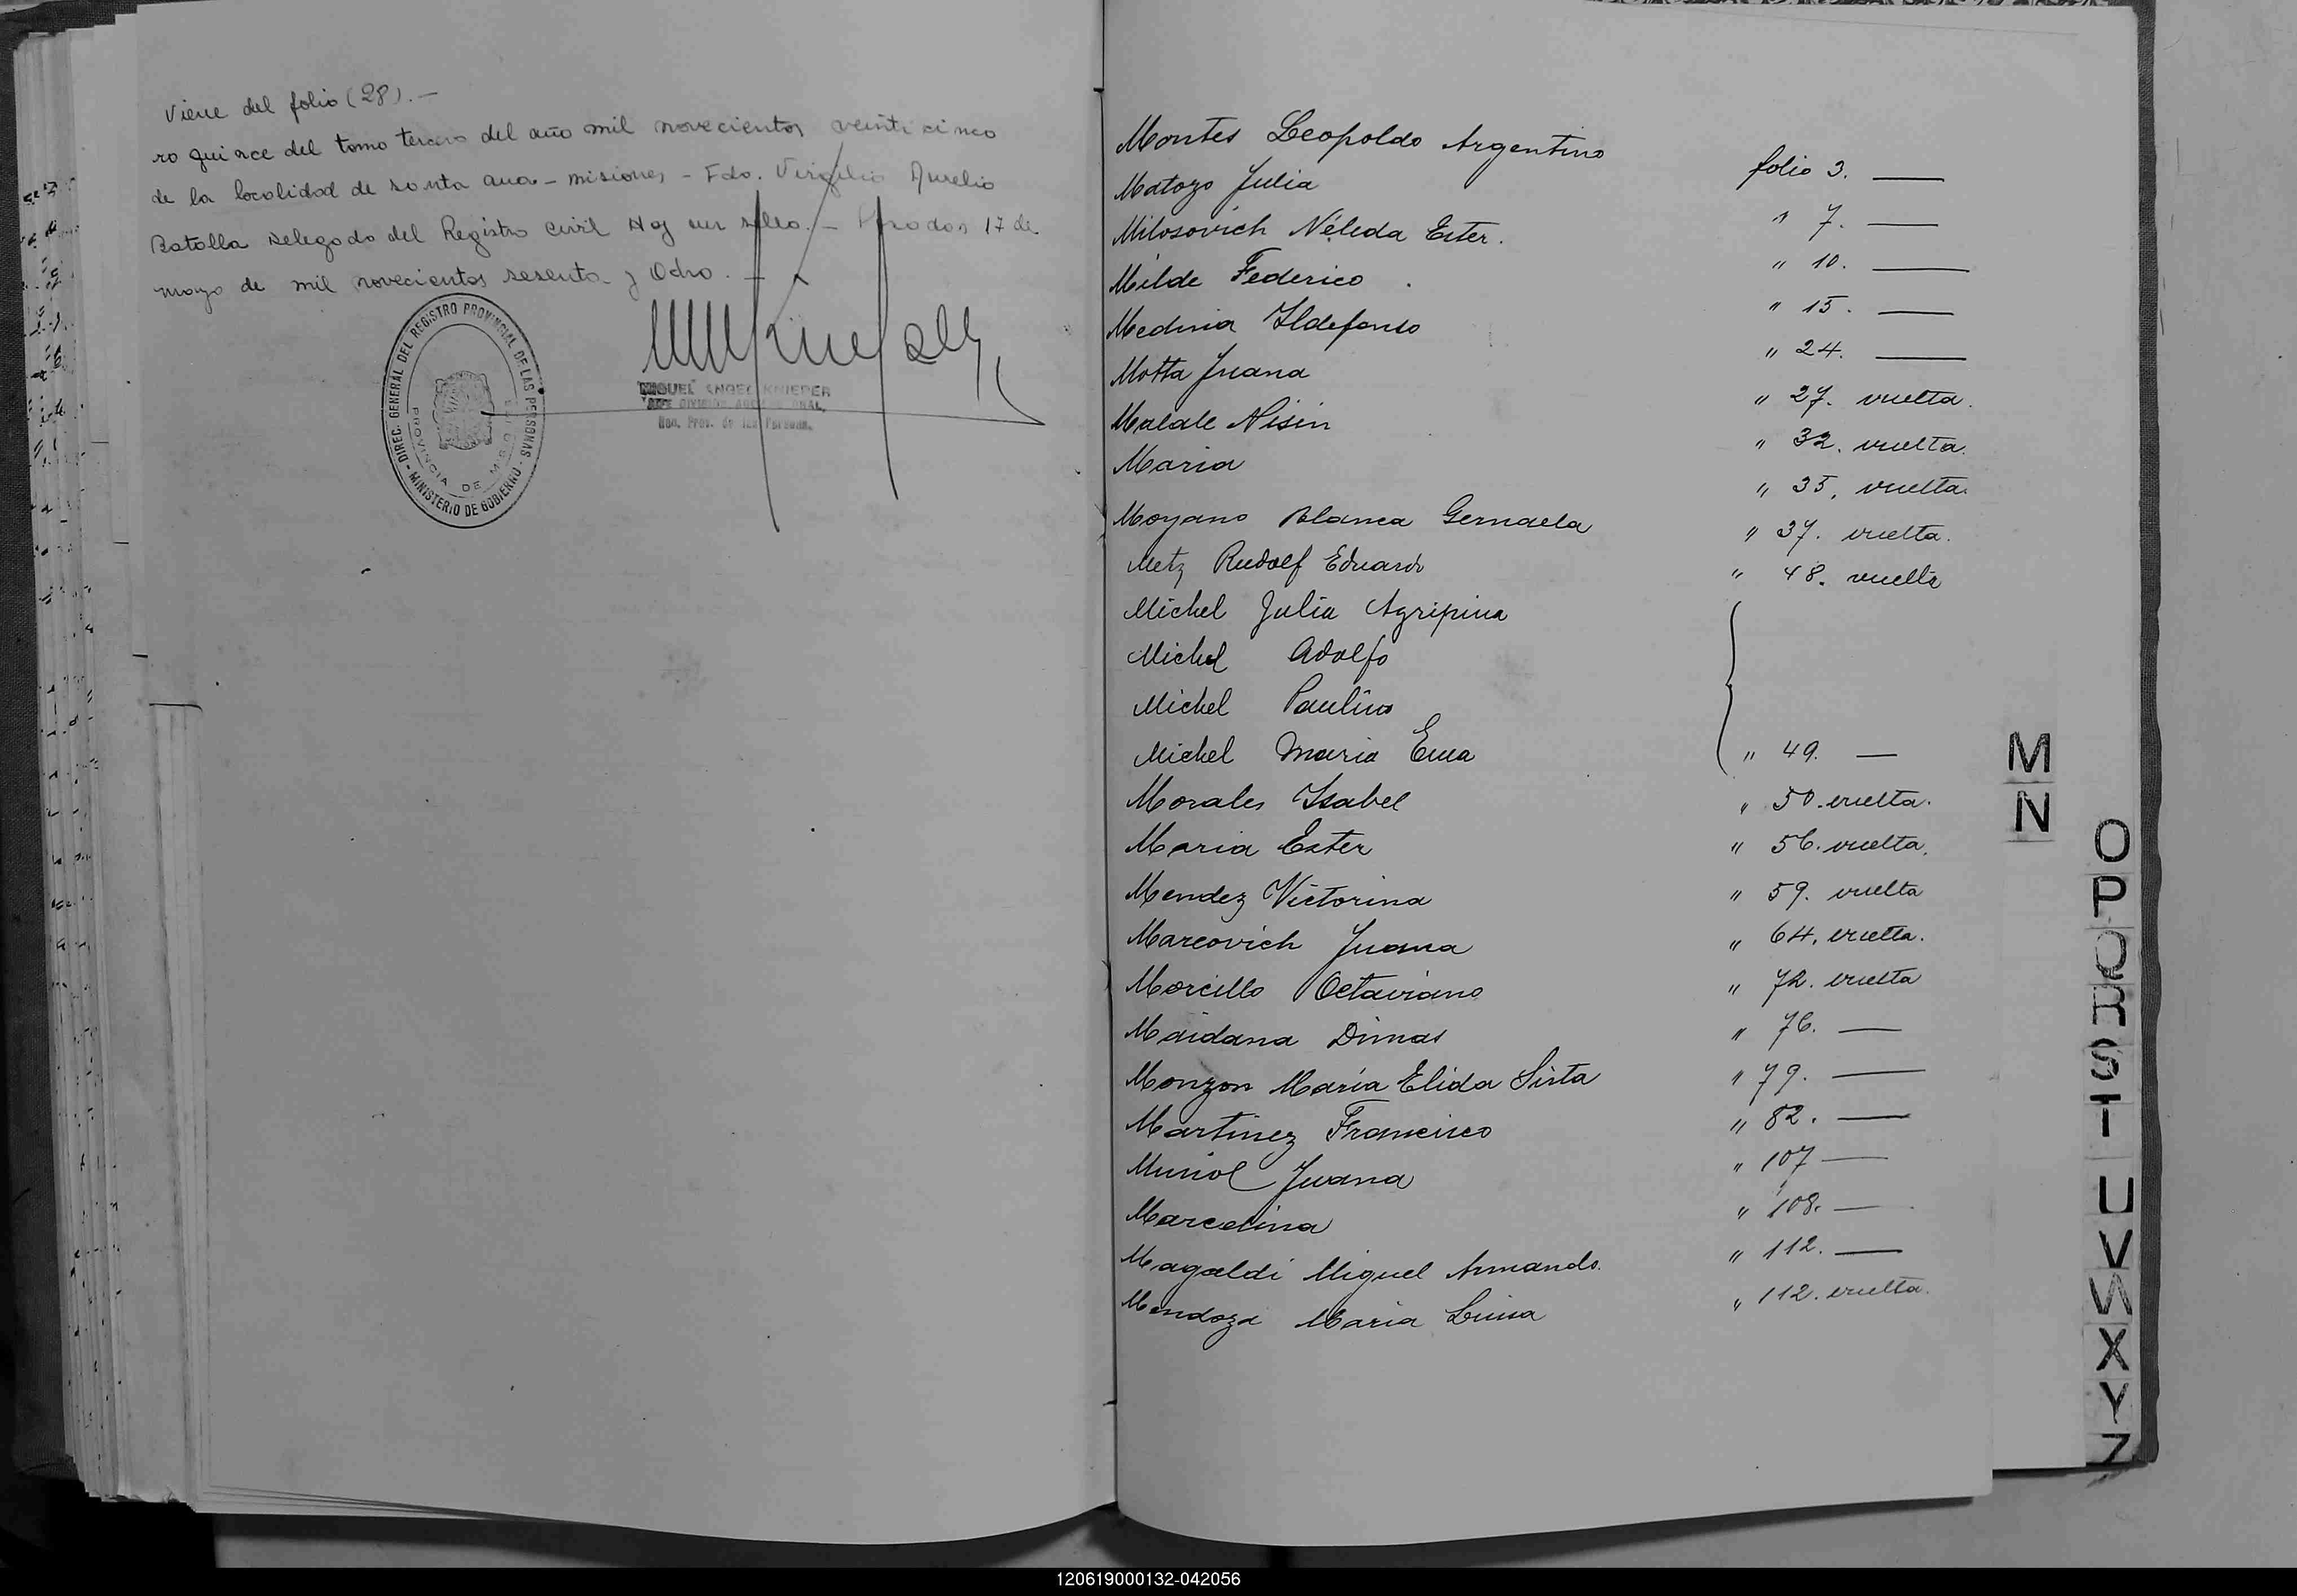 Viene del folio (28).—
ro quince del tomo tercero del año mil novecientos veinticinco
de la localidad de santa ana - misiones - Fdo. Virgilio Aurelio
Batalla Delegado del Registro civil Hay un sello. - Posadas 17 de
mayo de mil novecientos sesenta y Ocho.
DIREC. GENERAL DEL REGISTRO PROVINCIAL DE LAS PERSONAS
- MINISTERIO DE GOBIERNO -
PROVINCIA DE MISIONES
MIGUEL ANGEL KNIEPER
Montes Leopoldo Argentino folio 3. —
Matozo Julia " 7. —
Milosovich Néleda Ester. " 10. —
Milde Federico " 15. —
Medina Ildefonso " 24. —
Motta Juana " 27. vuelta.
Malale Nisin " 32. vuelta.
Maria " 35. vuelta.
Moyano Blanca Gernaela " 37. vuelta.
Metz Rudolf Eduard " 48. vuelta
Michel Julia Agripina
Michel Adolfo
Michel Paulino
Michel Maria Ema " 49. —
Morales Isabel " 50. vuelta.
Maria Ester " 56. vuelta.
Mendez Victorina " 59. vuelta
Marcovich Juana " 64. vuelta.
Morcillo Octaviano " 72. vuelta
Maidana Dimas " 76. —
Monzon Maria Elida Sista " 79. —
Martinez Francisco " 82. —
Muriol Juana " 107 —
Marcelina " 108. —
Magaldi Miguel Armando. " 112. —
Mendoza Maria Luisa " 112. vuelta.
M
N
O
P
Q
R
S
T
U
V
W
X
Y
Z
120619000132-042056